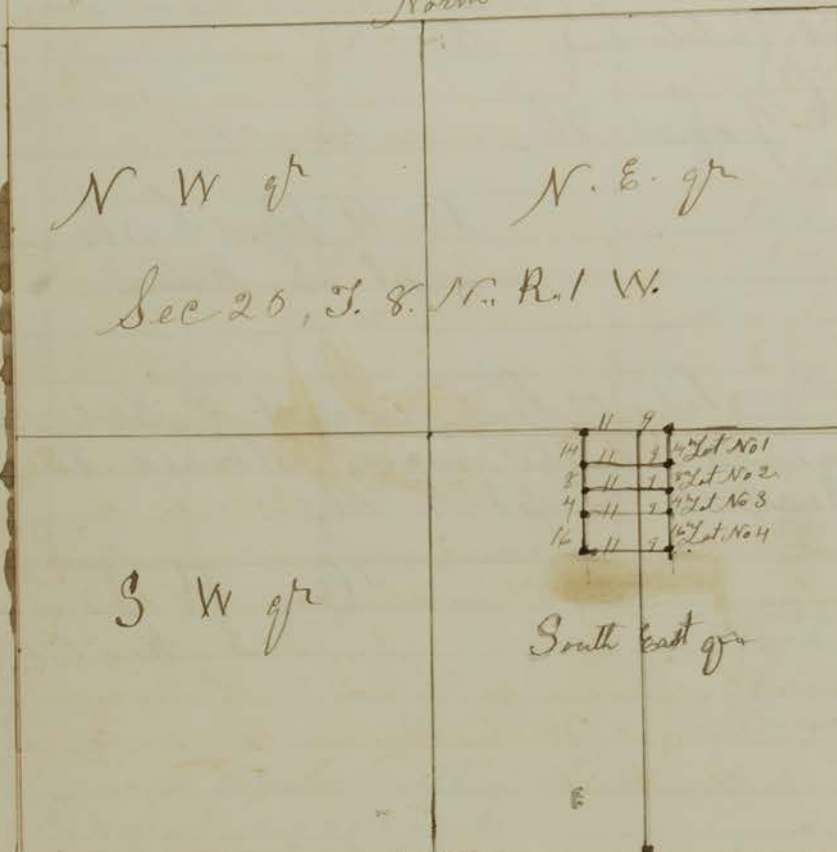 North
N W qr
N. E. qr
Sec 20, T. 8. N., R. 1 W.
11 9
14 11 9 14 Lot No 1
8 11 9 8 Lot No 2
4 11 9 4 Lot No 3
16 11 9 16 Lot No 4
S W qr
South East qr